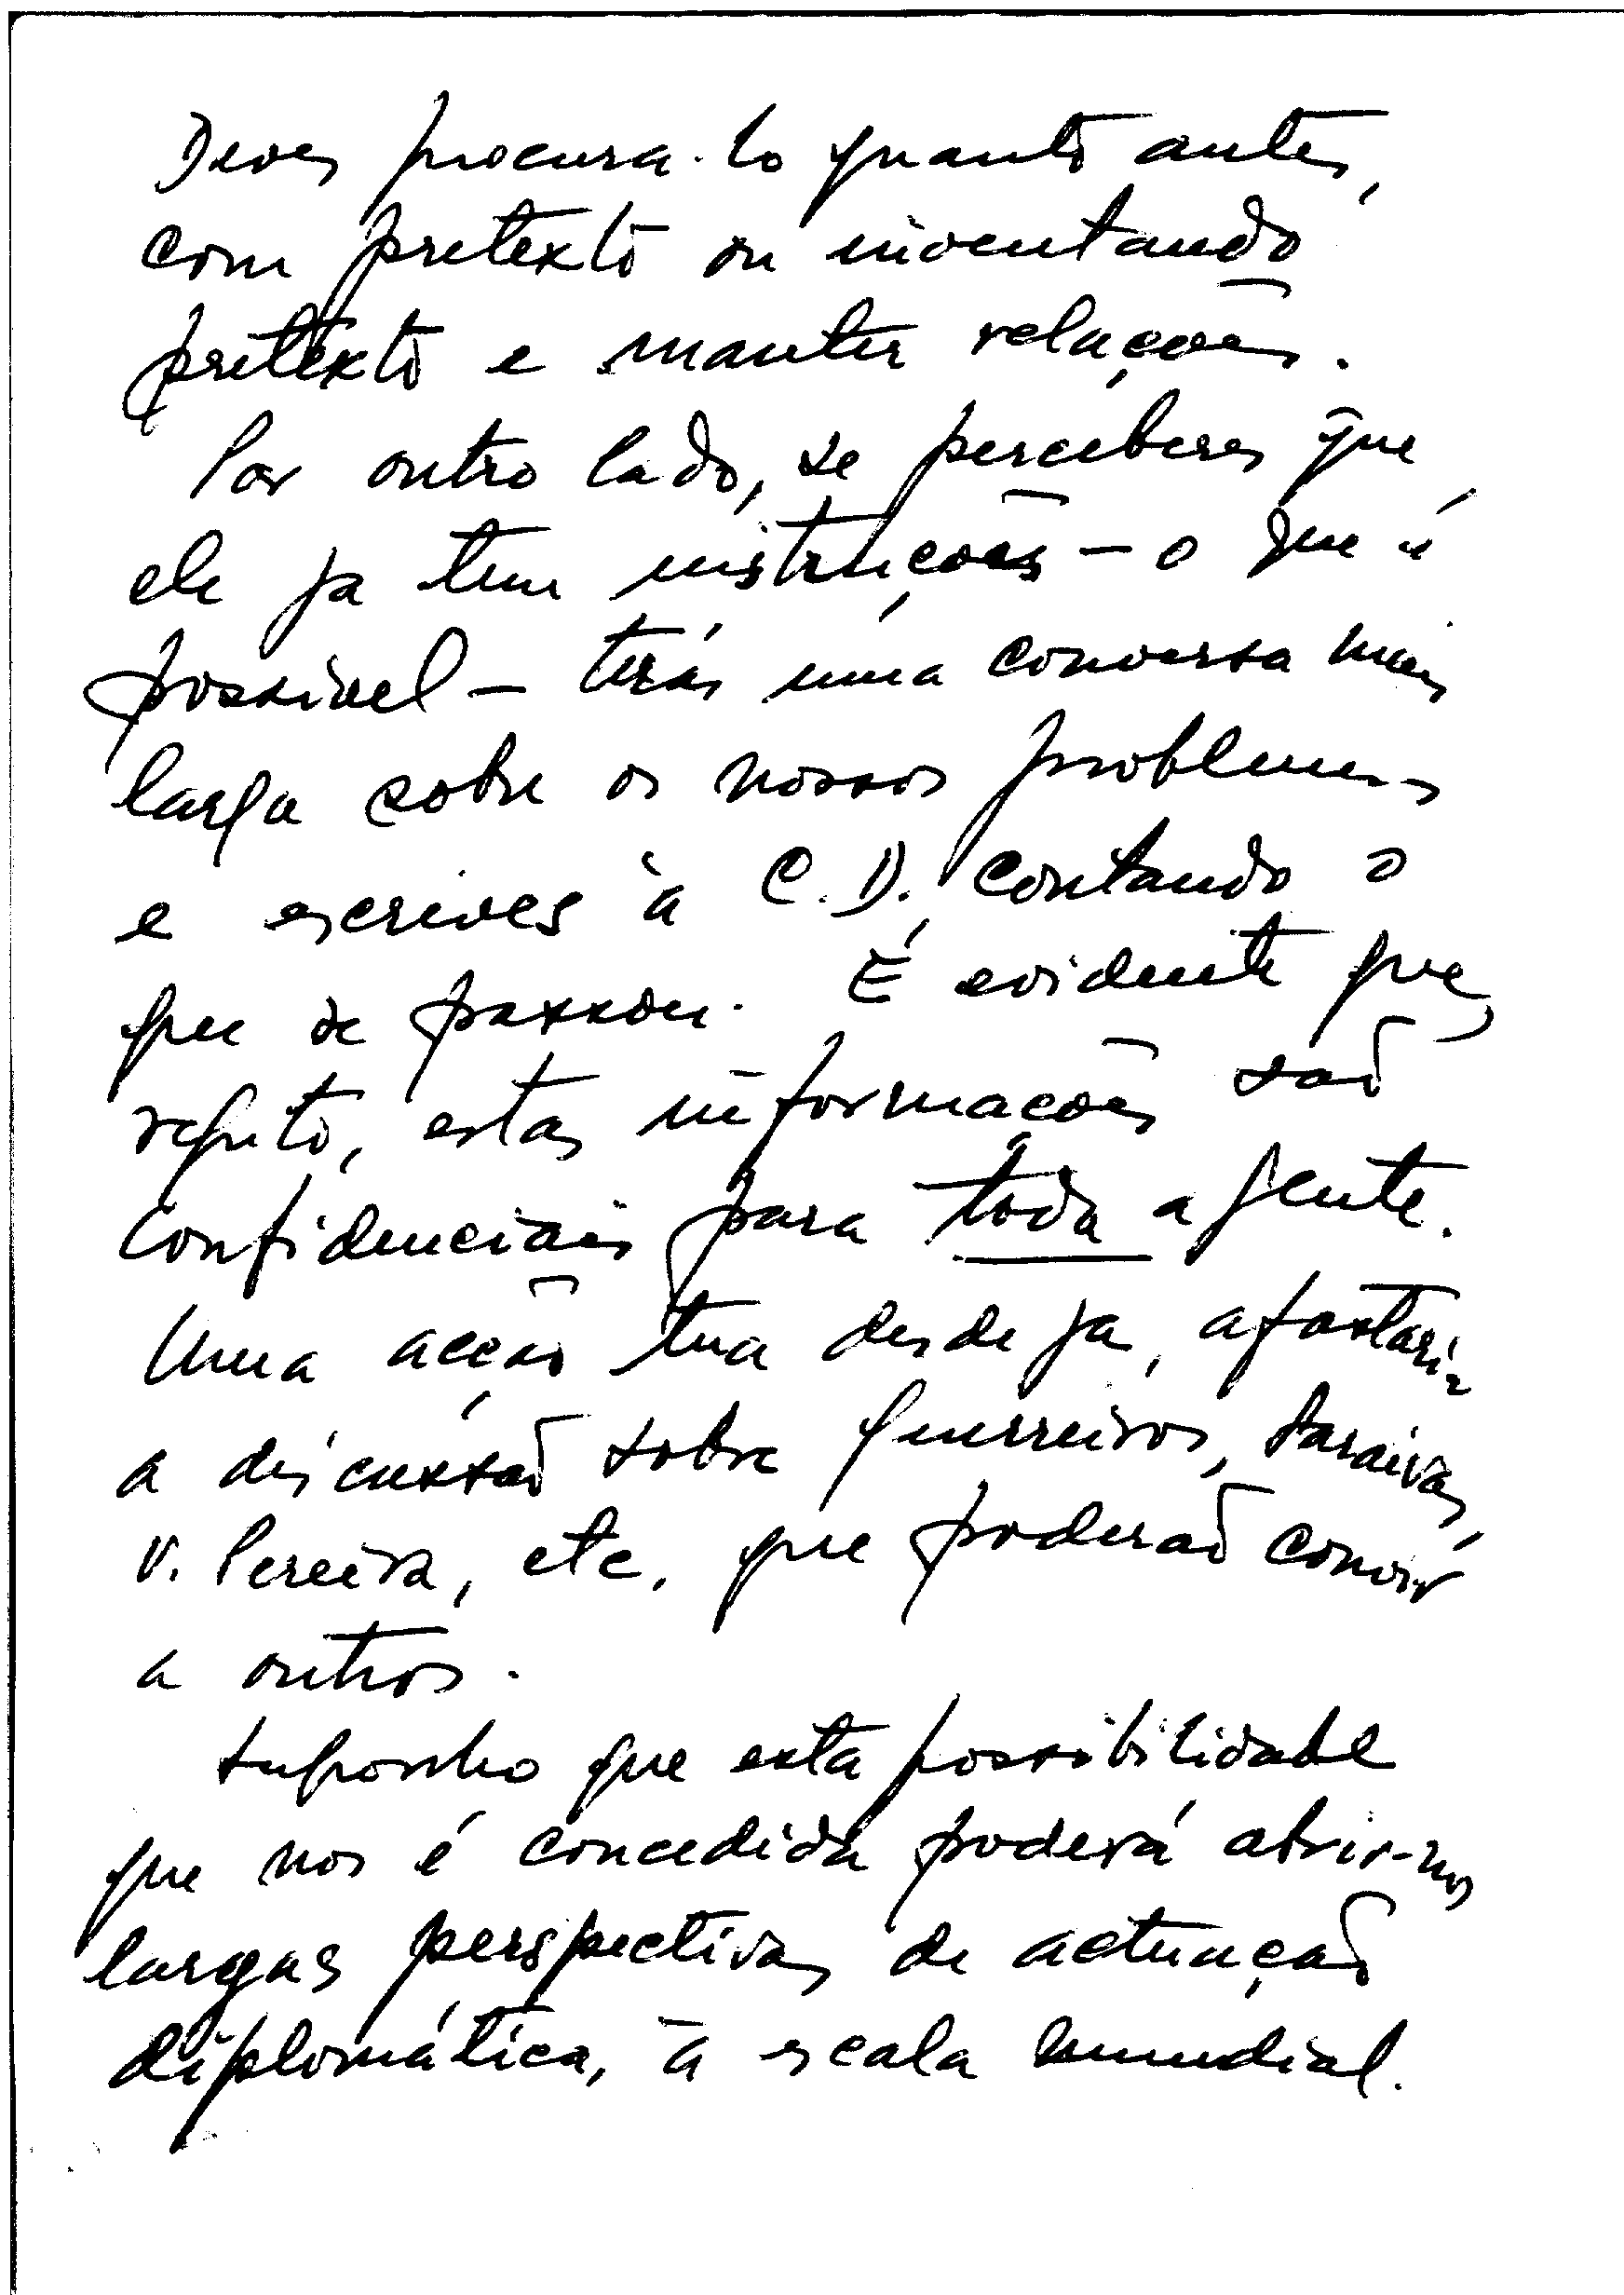 Deves procura-lo quanto antes,
com pretexto ou inventando
pretexto e manter relações.
Por outro lado, se perceberes que
ele ja tem instruções - o que é
possivel - terás uma conversa mais
larga sobre os nossos problemas
e escreves à C.D. contando o
que se passou. É evidente que,
repito, estas informações são
confidenciais para toda a gente.
Uma acção tua desde ja, afastaria
a discussão sobre Guerreiros, Saraivas,
V. Pereira, etc, que poderão convir
a outros.
Suponho que esta possibilidade
que nos é concedida poderá abrir-nos
largas perspectivas de actuação
diplomática, à escala mundial.